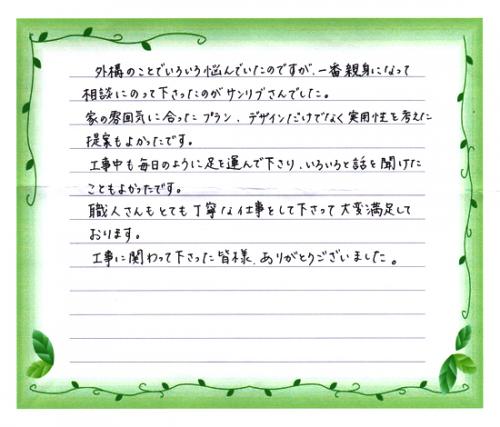 外構のことでいろいろ悩んでいたのですが、一番親身になって
相談にのって下さったのがサンリブさんでした。
家の雰囲気に合ったプラン、デザインだけでなく実用性を考えた
提案もよかったです。
工事中も毎日のように足を運んで下さり、いろいろと話を聞けた
こともよかったです。
職人さんもとても丁寧な仕事をして下さって大変満足して
おります。
工事に関わって下さった皆様、ありがとうございました。